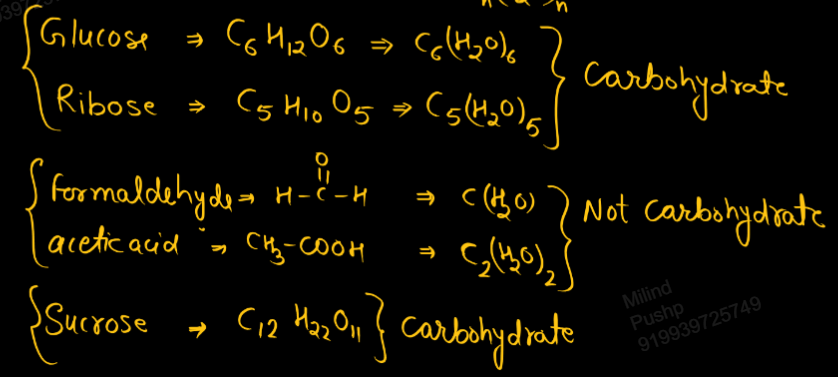 n
Glucose ⇒ C6H12O6 ⇒ C6(H2O)6
Ribose ⇒ C5H10O5 ⇒ C5(H2O)5
Carbohydrate
formaldehyde ⇒ H-C-H ⇒ C(H2O)
O
acetic acid ⇒ CH3-COOH ⇒ C2(H2O)2
Not Carbohydrate
Sucrose → C12H22O11 Carbohydrate
Milind
Pushp
919939725749